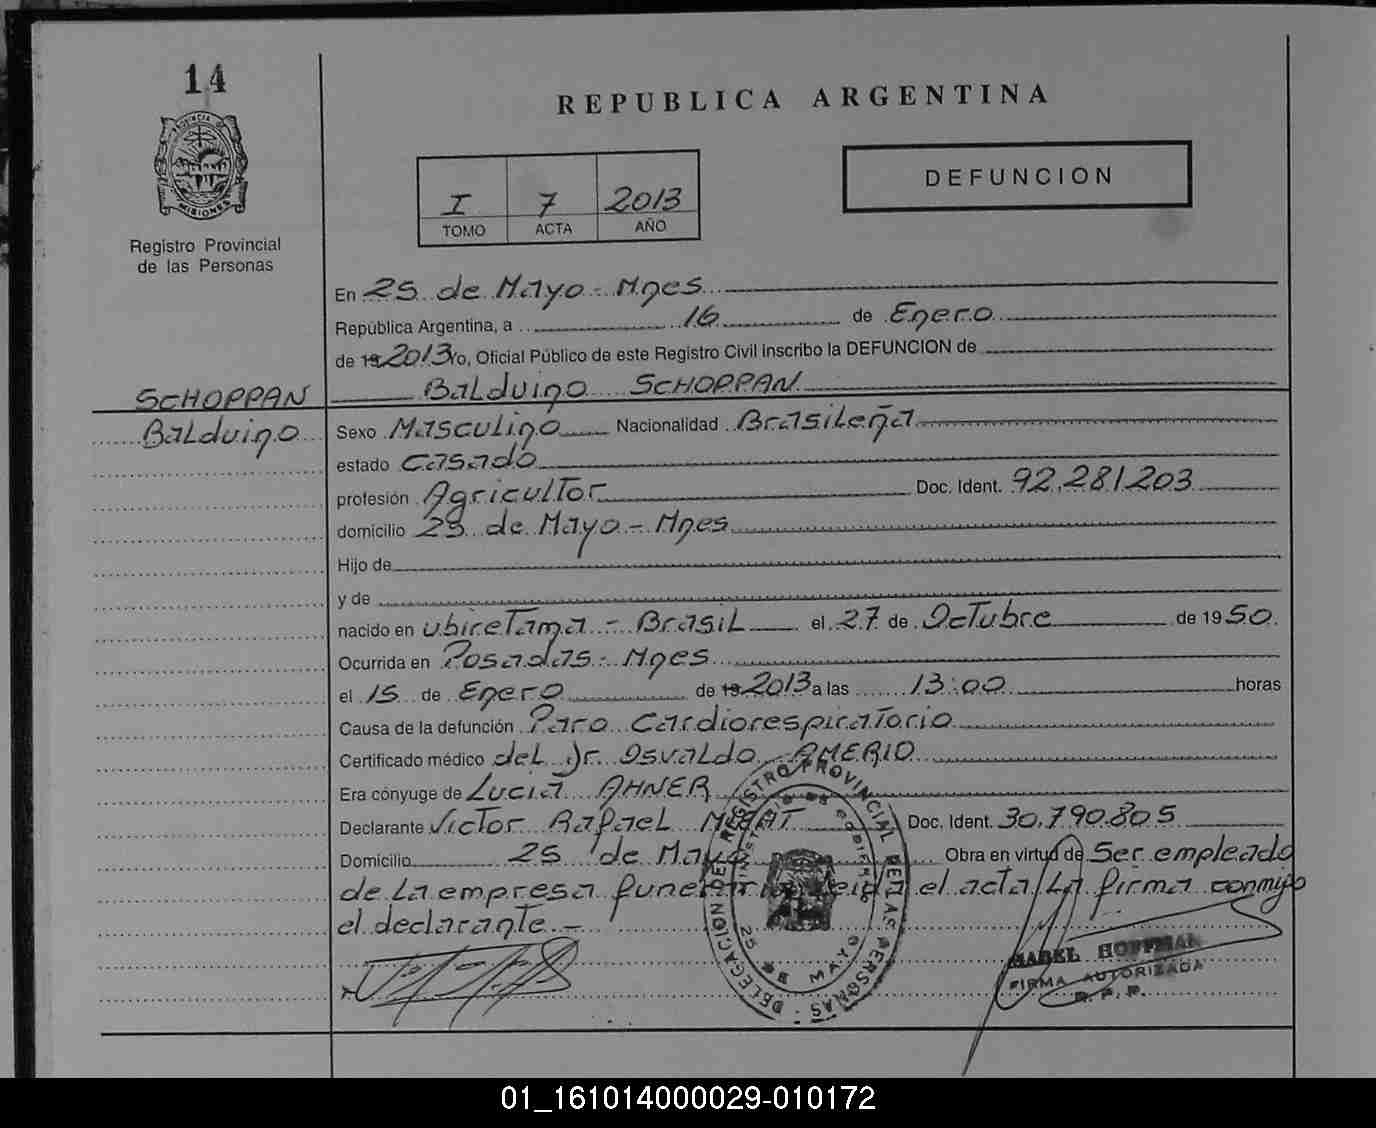 14
PROVINCIA DE
MISIONES
Registro Provincial
de las Personas
REPUBLICA ARGENTINA
I 7 2013
TOMO ACTA AÑO
DEFUNCION
En 25 de Mayo - Mnes
República Argentina, a 16 de Enero
de 19 2013 Yo, Oficial Público de este Registro Civil inscribo la DEFUNCION de
Balduino SCHOPPAN
SCHOPPAN
Balduino
Sexo Masculino Nacionalidad Brasileña
estado Casado
profesión Agricultor Doc. Ident. 92.281.203
domicilio 25 de Mayo - Mnes
Hijo de
y de
nacido en ubiretama - Brasil el 27 de Octubre de 1950
Ocurrida en Posadas - Mnes
el 15 de Enero de 19 2013 a las 13:00 horas
Causa de la defunción Paro Cardiorespiratorio
Certificado médico del Dr. Osvaldo AMERIO
Era cónyuge de Lucia AHNER
Declarante Victor Rafael Doc. Ident. 30.790.805
Domicilio 25 de Mayo Obra en virtud de Ser empleado
de la empresa funeraria leida el acta la firma conmigo
el declarante -
DELEGACION DEL REGISTRO PROVINCIAL DE LAS PERSONAS
MINISTERIO DE GOBIERNO
25 DE MAYO
MABEL HOFFMAN
FIRMA AUTORIZADA
R. P. P.
01_161014000029-010172